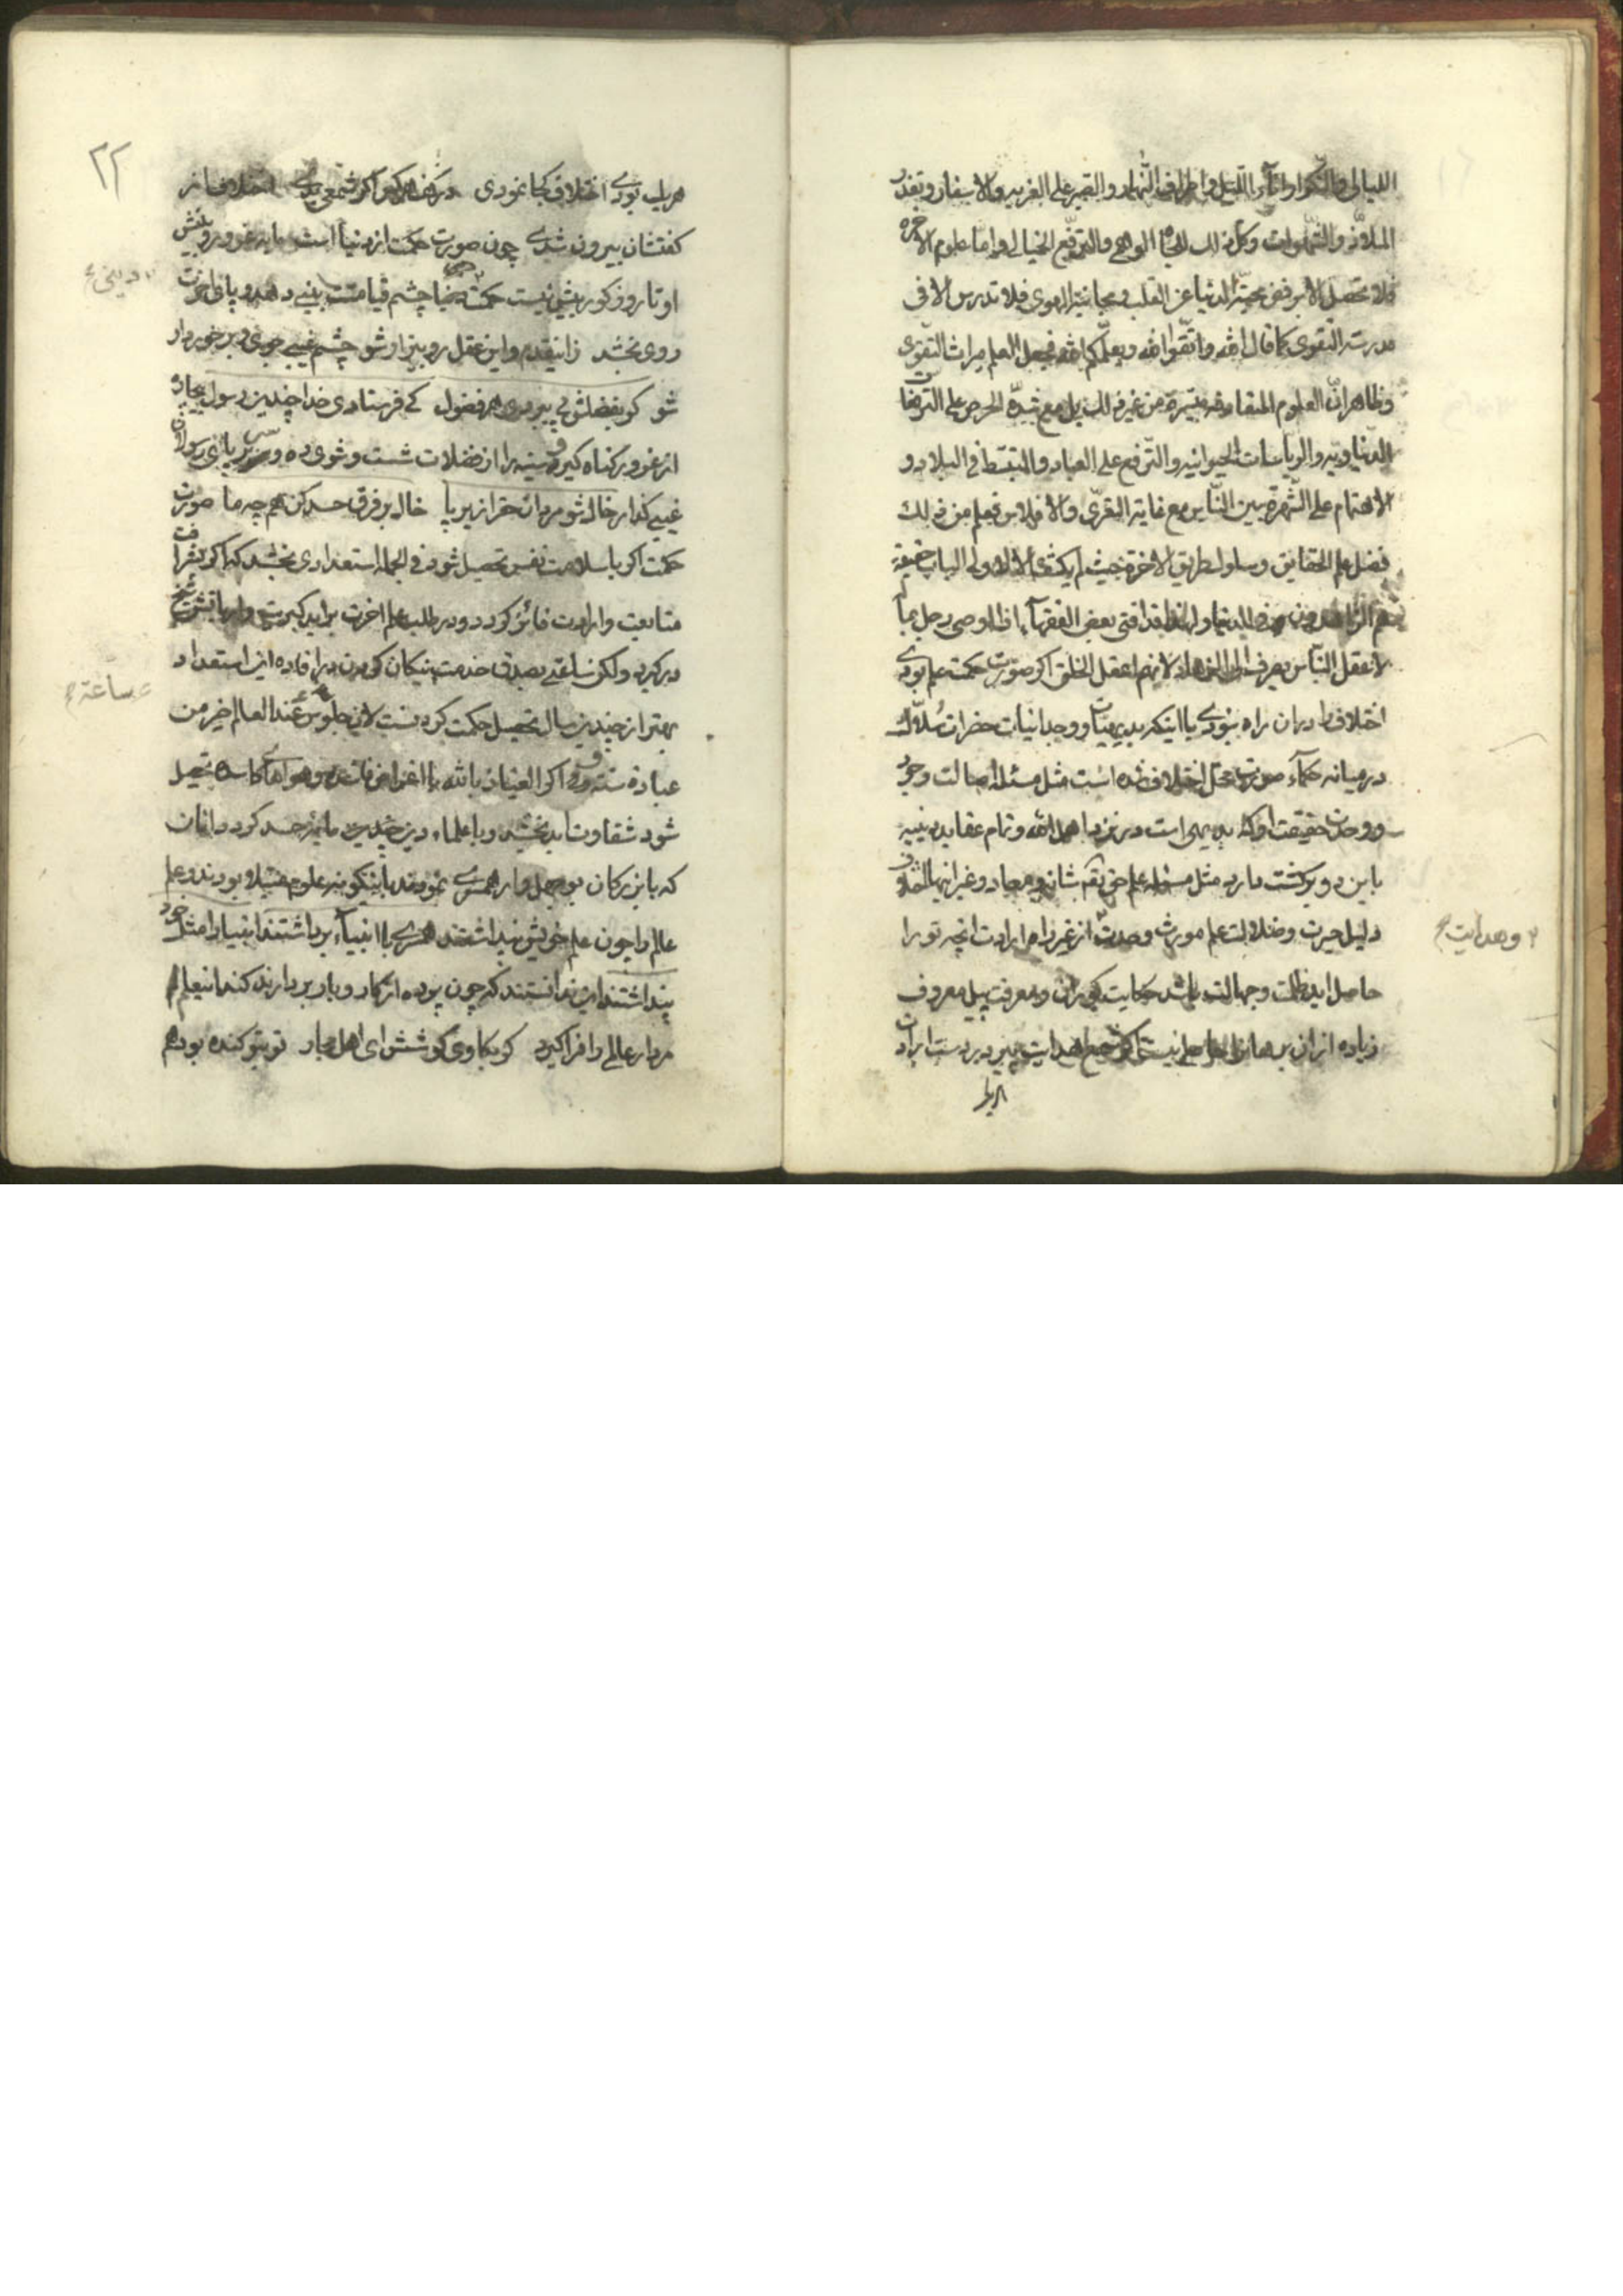 الليالی والتكرار اناء الليل واطراف النهار والصبر علی الغربه والاسفار وتعذر
الملاذ والشهوات وكل ذلك للجاه الوهمی والترفع الخيالی واما علوم الاخره
فلا تحصل الا برفض محبة الدنيا عن القلب ومجانبة الهوی فلا تدرس الا فی
مدرسة التقوی كما قال الله واتقوا الله ويعلمكم الله فجعل العلم ميراث التقوی
وظاهر ان العلوم المتعارفه ميسرة من غير ذلك بل مع شدة الحرص علی الترفعات
الدنياويه والرياسات الحيوانيه والترفع علی العباد والتبسط فی البلاد و
الاهتمام علی الشهرة بين الناس مع غاية التعری والافلاس فعلم من ذلك
فضل علم الحقايق وسلوك طريق الاخرة حيث لم يكشف الا لاولی الالباب حقيقة
هم الزاهدون فی الدنيا ولهذا قد افتی بعض الفقهاء اذا اوصی رجل بما
لاعقل الناس يصرف الی الزهاد لانهم اعقل الخلق اكر صورت حكمت علم بودی
اختلاف را دران راه نبودی با اینكه بدیهیات ووجدانیات حضرات سلاك
درمیانه حكماء صورت محل اختلاف شده است مثل مسئله اصالت وجود
ووحدت حقیقت او كه بدیهی است در نزد اهل الله وتمام عقاید دینیه
باین دو بركشت دارد مثل مسئله علم حق تعم شانه ومعاد وغیر اینها اختلاف
دلیل حیرت وضلالت علم مورث وحدت از غیر راه ارادت انچه تو را
حاصل اید ظلمت وجهالت باشد حكایت كوران ومعرفت پیل معروف
زیاده از ان بر هانرا حاصلی نیست اكر شمع هدایت پیر در دست ارادت
وهدایت
۲۲
هریك بودی اختلاف كجا نمودی در كف هر كس اكر شمعی بدی اختلاف از
كفتشان بیرون شدی چون صورت حكمت از دنیا است مایه غرور وبینش
او تا روز كور بیش نیست حكمت دینی ضیا چشم قیامت بینی دهد وپای اخرت
روی بخشد زین قدم واین عقل رو بیزار شو چشم غیبی جوی وبرخوردار
شو كر بفضلش پی ببردی هر فضول كی فرستادی خدا چندین رسول بیچاره
از غرور كناه كیر وسینه را از فضلات شست وشوی ده وسر بر پای رسولان
غیبی كذار خاك شو مردان حق را زیر پا خاك بر فرق حسد كن همچو ما صورت
حكمت اكر با سلامت نفس تحصیل شود فی الجمله استعدادی بخشد كه اكر بشرافت
متابعت وارادت فائز كردد ودر طلب علم اخرت براید كبریت وار باتش شیخ
در كیرد ولكن ساعتی بصدق خدمت نیكان كردن در افاده این استعداد
بهتر از چندین سال تحصیل حكمت كردنست لان جلوس ساعة عند العالم خیر من
عبادة سنة واكر العیاذ بالله با اغراض فاسده وهواهای كاسده تحصیل
شود شقاوت ابد بخشد وبا علماء دین چندین مایه حسد كردد انان
كه با بزركان بوجهل وار همسری نمودند باینكونه علوم مبتلا بودند وعلم
عالم را چون علم خویش پنداشتند همسری با انبیاء برداشتند انبیا را مثل خود
پنداشتند این ندانستند كه چون پرده از كار وبار بردارند كند این علم
مردار عالم را فرا كیرد كر بكاوی كوشش ای اهل مجاز تو بتو كنده بود هم
دینی
ساعة